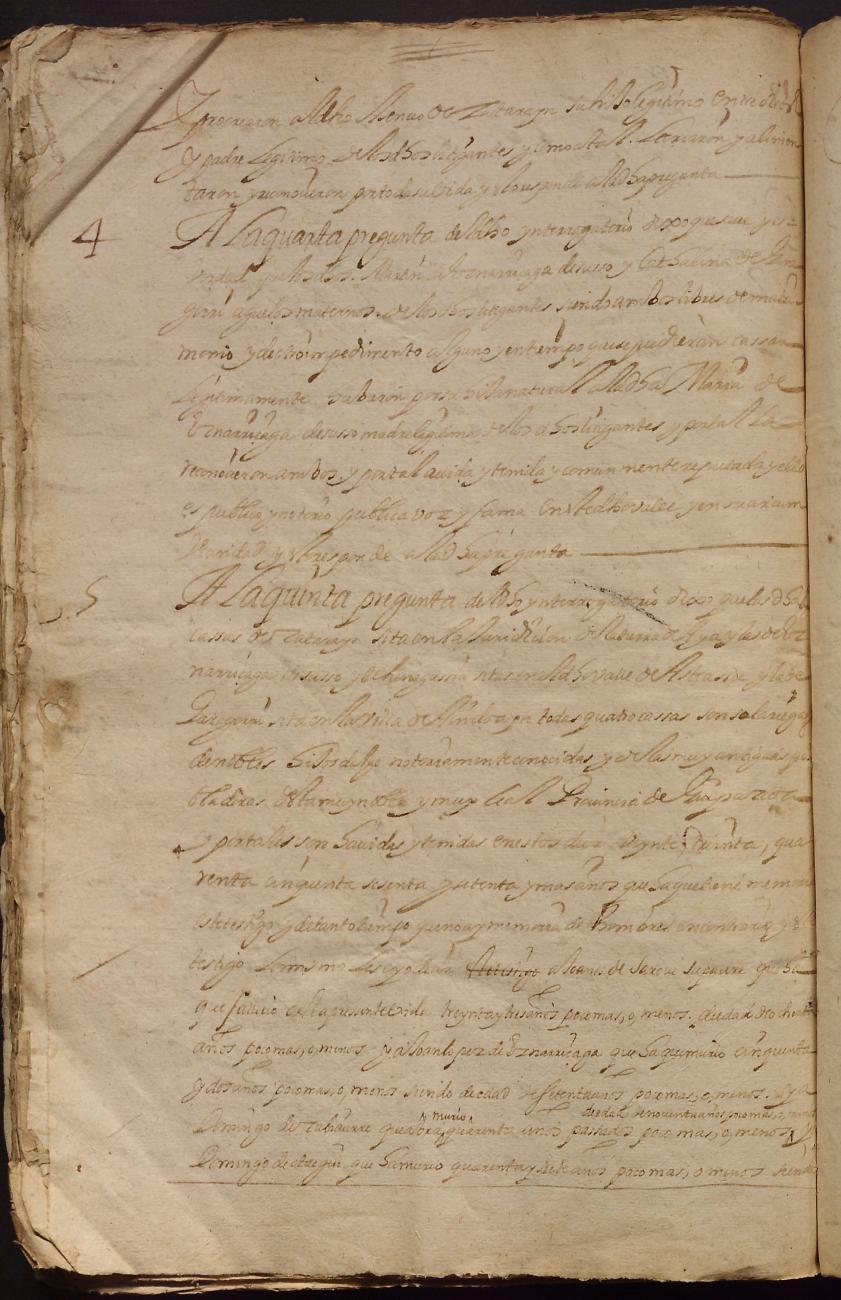 Y procrearon al dho de Zatarayn su hijo legitimo entre otros
y padre legitimo de los dhos litigantes y como a tal le criaron y alimen
taron y reconocieron por toda su vida y esto responde a la dha pregunta
4 A la quarta pregunta del dho ynterrogatorio dixo que save y es
verdad que los dhos Martin de Eznarriçaga de susso y Cathalina de
aguelos maternos de los dhos litigantes siendo ambos libres de matri
monio y de otro impedimento alguno y en tiempo que se pudieran cassar
legitimamente hubieron por su hija natural a la dha Maria de
Eznarriçaga de susso madre legitima de los dhos litigantes y por tal la
reconocieron ambos y por tal avida y tenida y comunmente reputada y ello
es publico y notorio publica voz y fama en el dho valle y en su
y esto responde a la dha pregunta
5 A la quinta pregunta del dho ynterrogatorio dixo que las dhas
cassas de Zatarayn sita en la juridicion de la tierra de Aya y las de Ez
narriçaga de susso y sitas en el dho valle de y la de
sita en la villa de todas quatro cassas son solariegas
de nobles hijos dalgo notoriamente conocidas y de las muy antiguas po
bladoras desta muy noble y muy leal Provincia de Guipuzcoa
y por tales son havidas y tenidas en estos diez veynte, treinta, qua
renta cinquenta sesenta y setenta y mas años que ha que tiene memoria
este testigo y de tanto tiempo que no ay memoria de hombres en contrario y
testigo lo mismo les oyo dezir a de su padre que ha
que fallecio desta presente vida treynta y tres años poco mas, o menos. de edad de ochenta
años poco mas, o menos y a Joan lopez de Eznarriçaga que ha que murio cinquenta
y dos años poco mas, o menos siendo de edad de setenta años poco mas, o menos. y a
de edad de noventa años poco mas, o menos
murio
Domingo de que abra quarenta años passados poco mas, o menos y
Domingo de que ha murio quarenta y siete años poco mas, o menos siendo